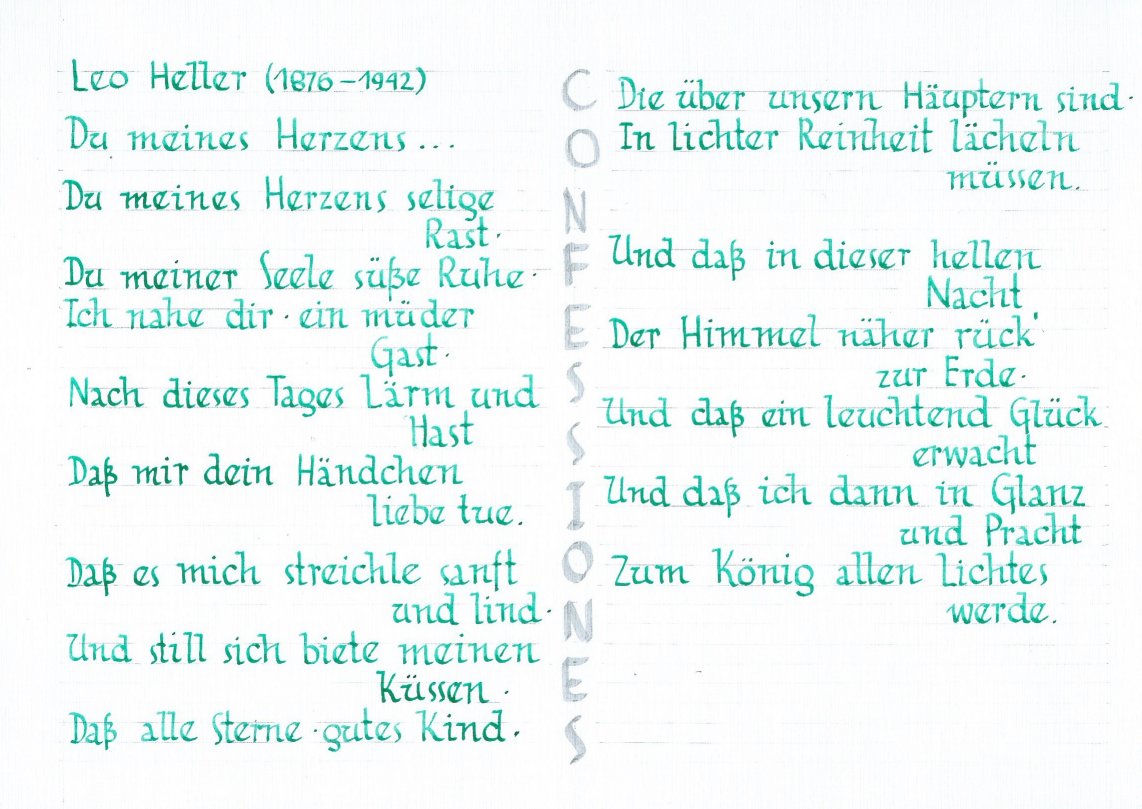 Leo Heller (1876-1942)
Du meines Herzens...
Du meines Herzens selige
Rast·
Du meiner Seele süße Ruhe·
Ich nahe dir· ein müder
Gast·
Nach dieses Tages Lärm und
Hast
Daß mir dein Händchen
liebe tue.
Daß es mich streichle sanft
und lind·
Und still sich biete meinen
Küssen·
Daß alle Sterne·gutes Kind·
CONFESSIONES
Die über unsern Häuptern sind·
In lichter Reinheit lächeln
müssen.
Und daß in dieser hellen
Nacht
Der Himmel näher rück'
zur Erde·
Und daß ein leuchtend Glück
erwacht
Und daß ich dann in Glanz
und Pracht
Zum König allen Lichtes
werde.